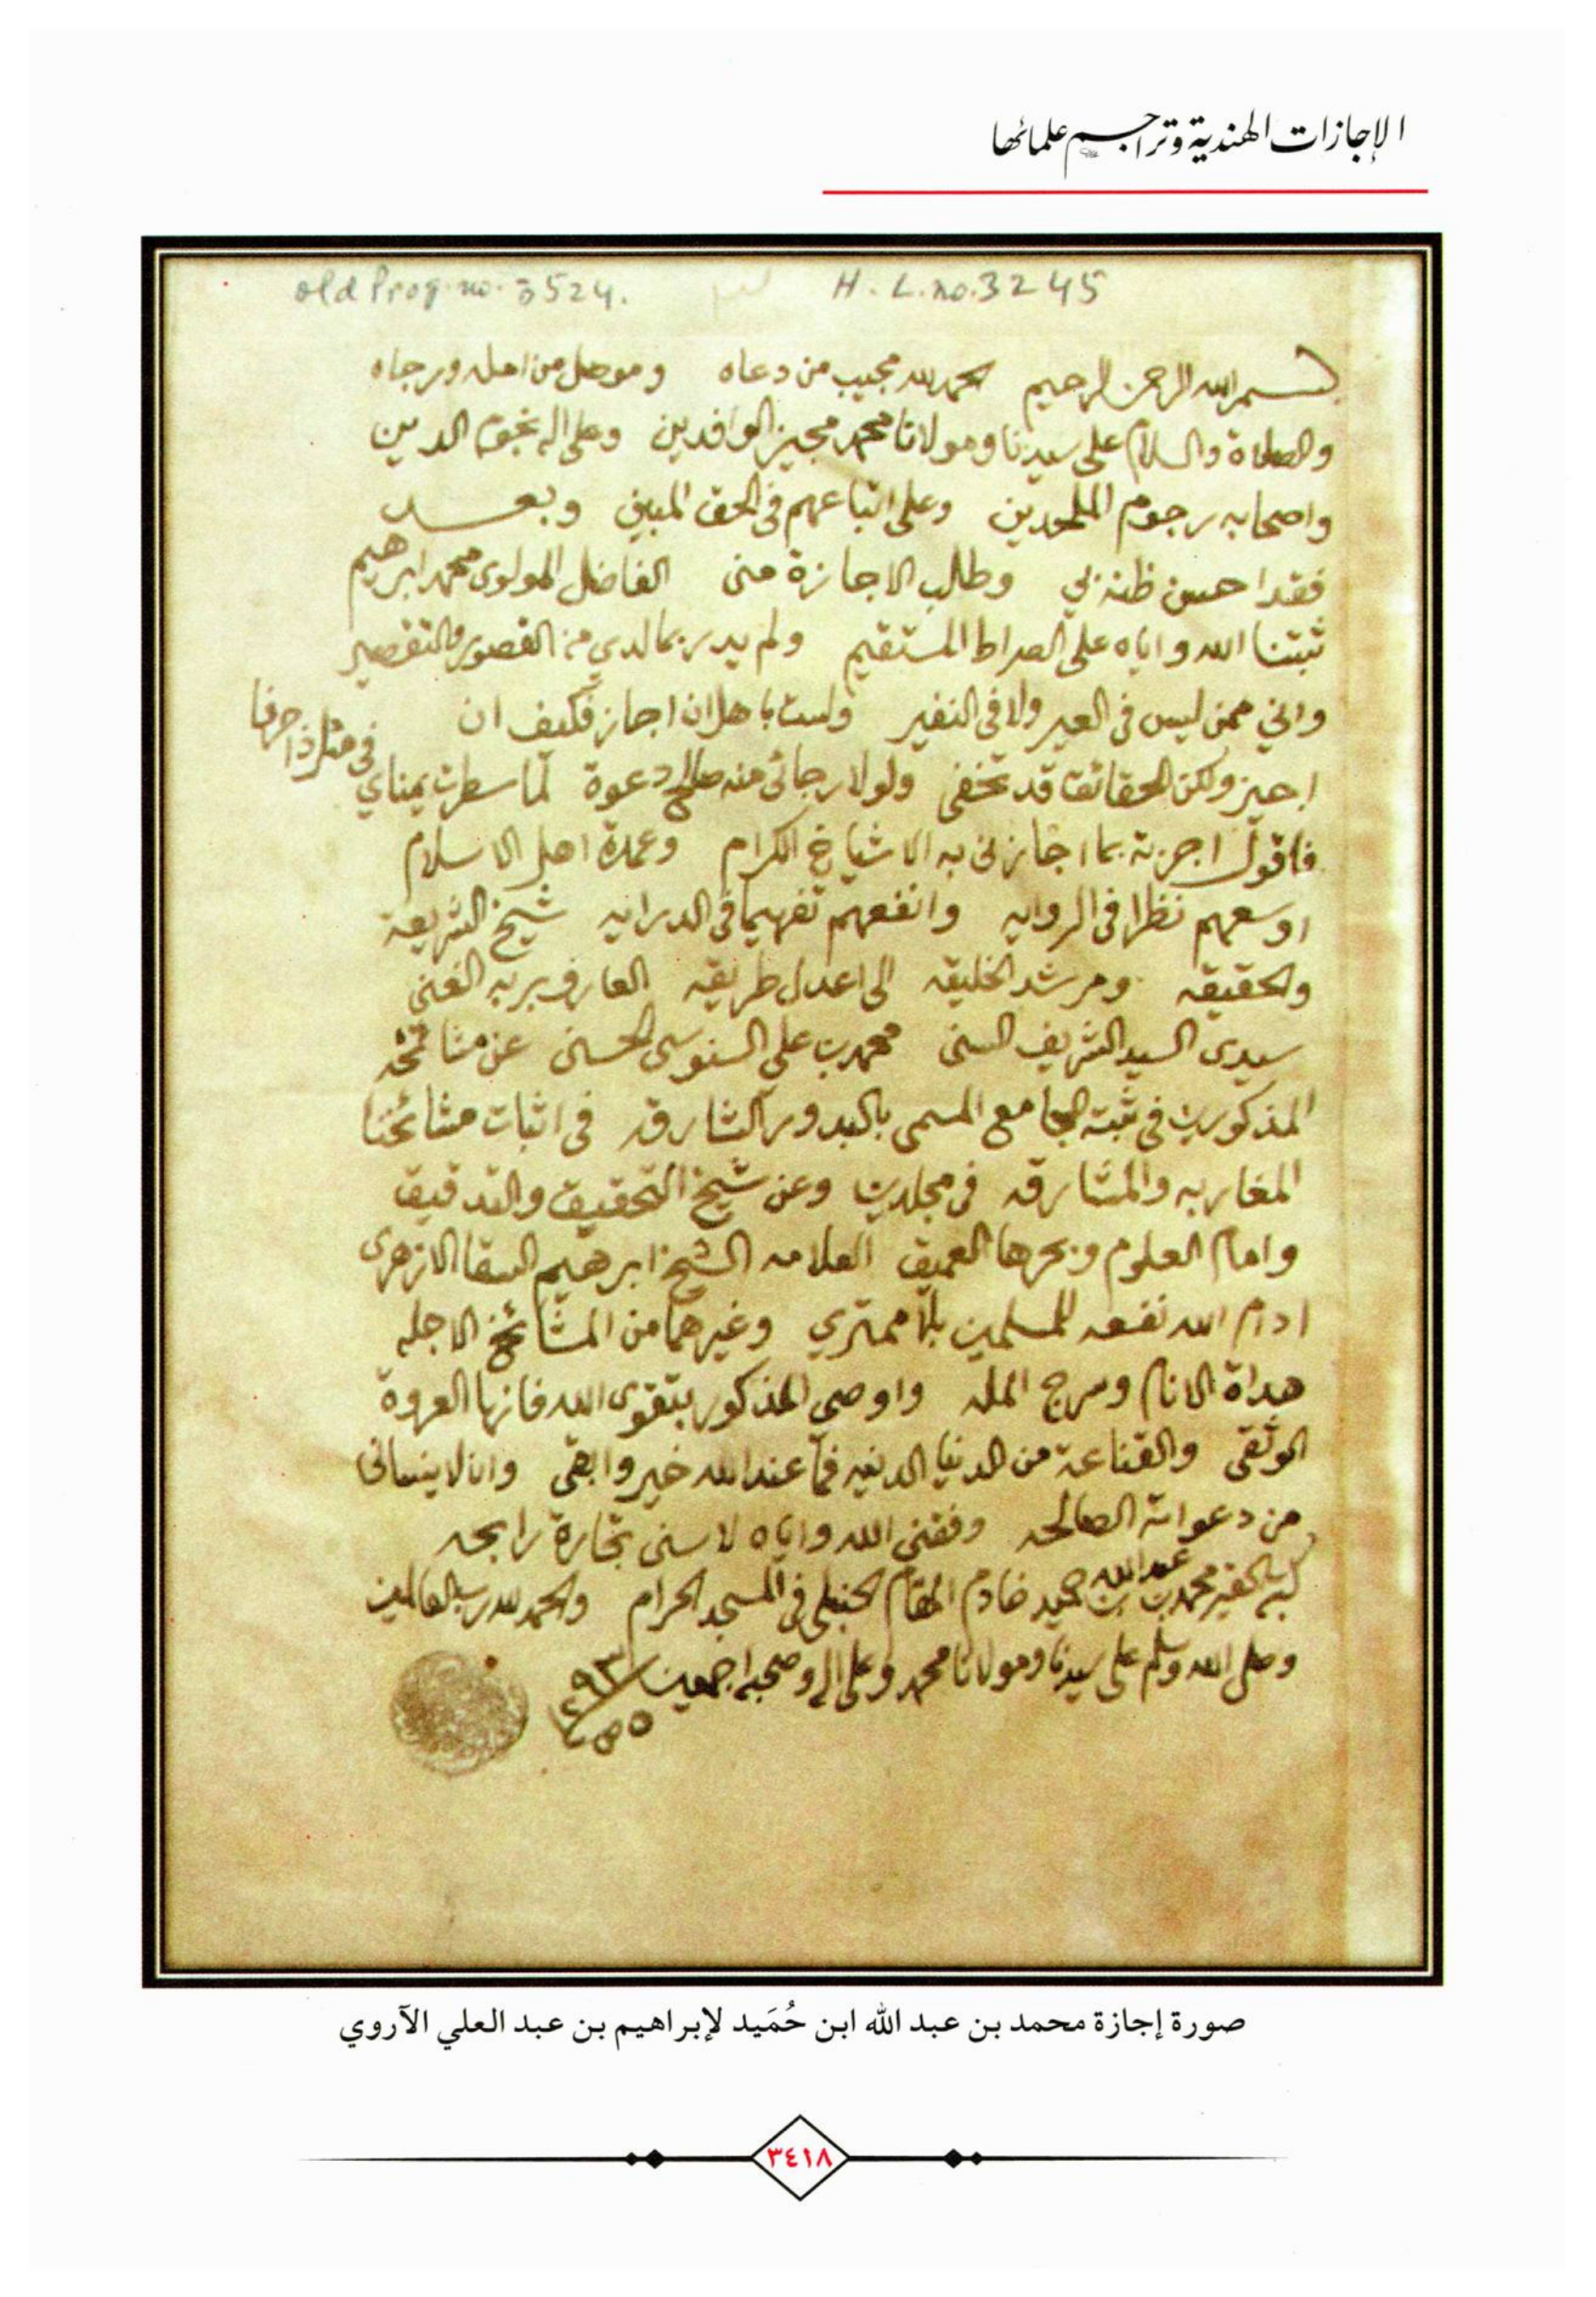 الإجازات الهندية وتراجم علمائها
old Prog. no. 3524. H. L. no. 3245
بسم الله الرحمن الرحيم الحمد لله مجيب من دعاه وموصل من امله ورجاه
والصلاة والسلام على سيدنا ومولانا محمد مجيز الوافدين وعلى اله نجوم الدين
واصحابه رجوم الملحدين وعلى اتباعهم في الحق المبين وبعد
فقد احسن ظنه بي وطلب الاجازة مني الفاضل المولوي محمد ابرهيم
ثبتنا الله واياه على الصراط المستقيم ولم يدر بما لدي من القصور والتقصير
واني ممن ليس في العير ولا في النفير ولست باهل ان اجاز فكيف ان
اجيز ولكن الحقائق قد تخفى ولولا رجائي منه صالح دعوة لما سطرت يمناي في مثل ذا حرفا
فاقول اجزته بما اجازني به الاشياخ الكرام وعمدة اهل الاسلام
اوسعهم نظرا في الروايه وانفعهم تفهيما في الدرايه شيخ الشريعة
والحقيقه ومرشد الخليقه الى اعدل طريقه العارف بربه الغني
سيدي السيد الشريف السني محمد بن علي السنوسي الحسني عن مشائخه
المذكورين في ثبته الجامع المسمى بالبدور الشارقه في اثبات مشائخنا
المغاربه والمشارقه في مجلدين وعن شيخ التحقيق والتدقيق
وامام العلوم وبحرها العميق العلامه الشيخ ابرهيم السقا الازهري
ادام الله نفعه للمسلمين بلا ممتري وغيرهما من المشائخ الاجله
هداة الانام وسرج المله واوصي المذكور بتقوى الله فانها العروة
الوثقى والقناعة من الدنيا الدنيه فما عند الله خير وابقى وان لا ينساني
من دعواته الصالحه وفقني الله واياه لاسنى تجارة رابحه
كتبه الحقير محمد بن عبد الله بن حميد خادم المقام الحنبلي في المسجد الحرام والحمد لله رب العالمين
وصلى الله وسلم على سيدنا ومولانا محمد وعلى اله وصحبه اجمعين
صورة إجازة محمد بن عبد الله ابن حُمَيد لإبراهيم بن عبد العلي الآروي
٣٤١٨